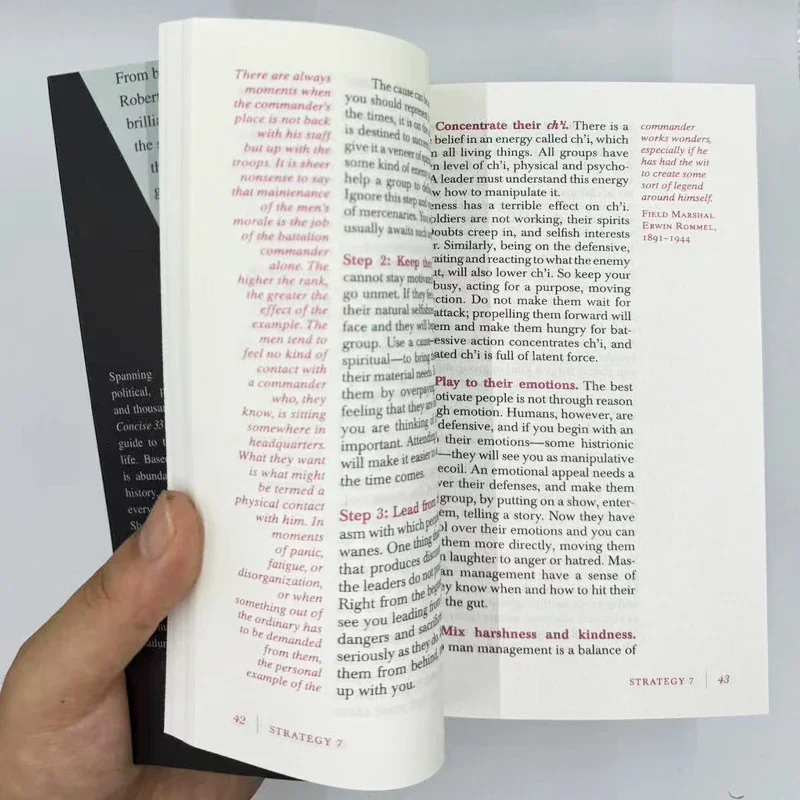 From b
Robert
brillia
the s
th
g
Spanning
political, p
and thousan
Concise 33
guide to t
life. Base
is abunda
history,
every
Sh
There are always
moments when
the commander's
place is not back
with his staff
but up with the
troops. It is sheer
nonsense to say
that maintenance
of the men's
morale is the job
of the battalion
commander
alone. The
higher the rank,
the greater the
effect of the
example. The
men tend to
feel no kind of
contact with
a commander
who, they
know, is sitting
somewhere in
headquarters.
What they want
is what might
be termed a
physical contact
with him. In
moments
of panic,
fatigue, or
disorganization,
or when
something out of
the ordinary has
to be demanded
from them,
the personal
example of the
The cause can be
you should represent
the times, it is on the
is destined to
give it a veneer of
some kind of enemy
help a group to
Ignore this step and
of mercenaries. You
usually awaits such
Step 2: Keep their
cannot stay motivated
go unmet. If they
their natural selfishness
face and they will
group. Use a cause
spiritual—to bring
their material needs
them by overpaying
feeling that they are
you are thinking of
important. Attending
will make it easier to
the time comes.
Step 3: Lead from
asm with which people
wanes. One thing
that produces
the leaders do not
Right from the
see you leading from
dangers and
seriously as they do
them from behind,
up with you.
42 | STRATEGY 7
Concentrate their ch'i. There is a
belief in an energy called ch'i, which
n all living things. All groups have
n level of ch'i, physical and psycho-
A leader must understand this energy
w how to manipulate it.
eness has a terrible effect on ch'i.
oldiers are not working, their spirits
oubts creep in, and selfish interests
r. Similarly, being on the defensive,
aiting and reacting to what the enemy
ut, will also lower ch'i. So keep your
busy, acting for a purpose, moving
ection. Do not make them wait for
attack; propelling them forward will
em and make them hungry for bat-
essive action concentrates ch'i, and
ated ch'i is full of latent force.
Play to their emotions. The best
otivate people is not through reason
gh emotion. Humans, however, are
defensive, and if you begin with an
their emotions—some histrionic
—they will see you as manipulative
ecoil. An emotional appeal needs a
er their defenses, and make them
group, by putting on a show, enter-
em, telling a story. Now they have
ol over their emotions and you can
them more directly, moving them
n laughter to anger or hatred. Mas-
an management have a sense of
ey know when and how to hit their
the gut.
Mix harshness and kindness.
man management is a balance of
commander
works wonders,
especially if he
has had the wit
to create some
sort of legend
around himself.
FIELD MARSHAL
ERWIN ROMMEL,
1891–1944
STRATEGY 7 | 43